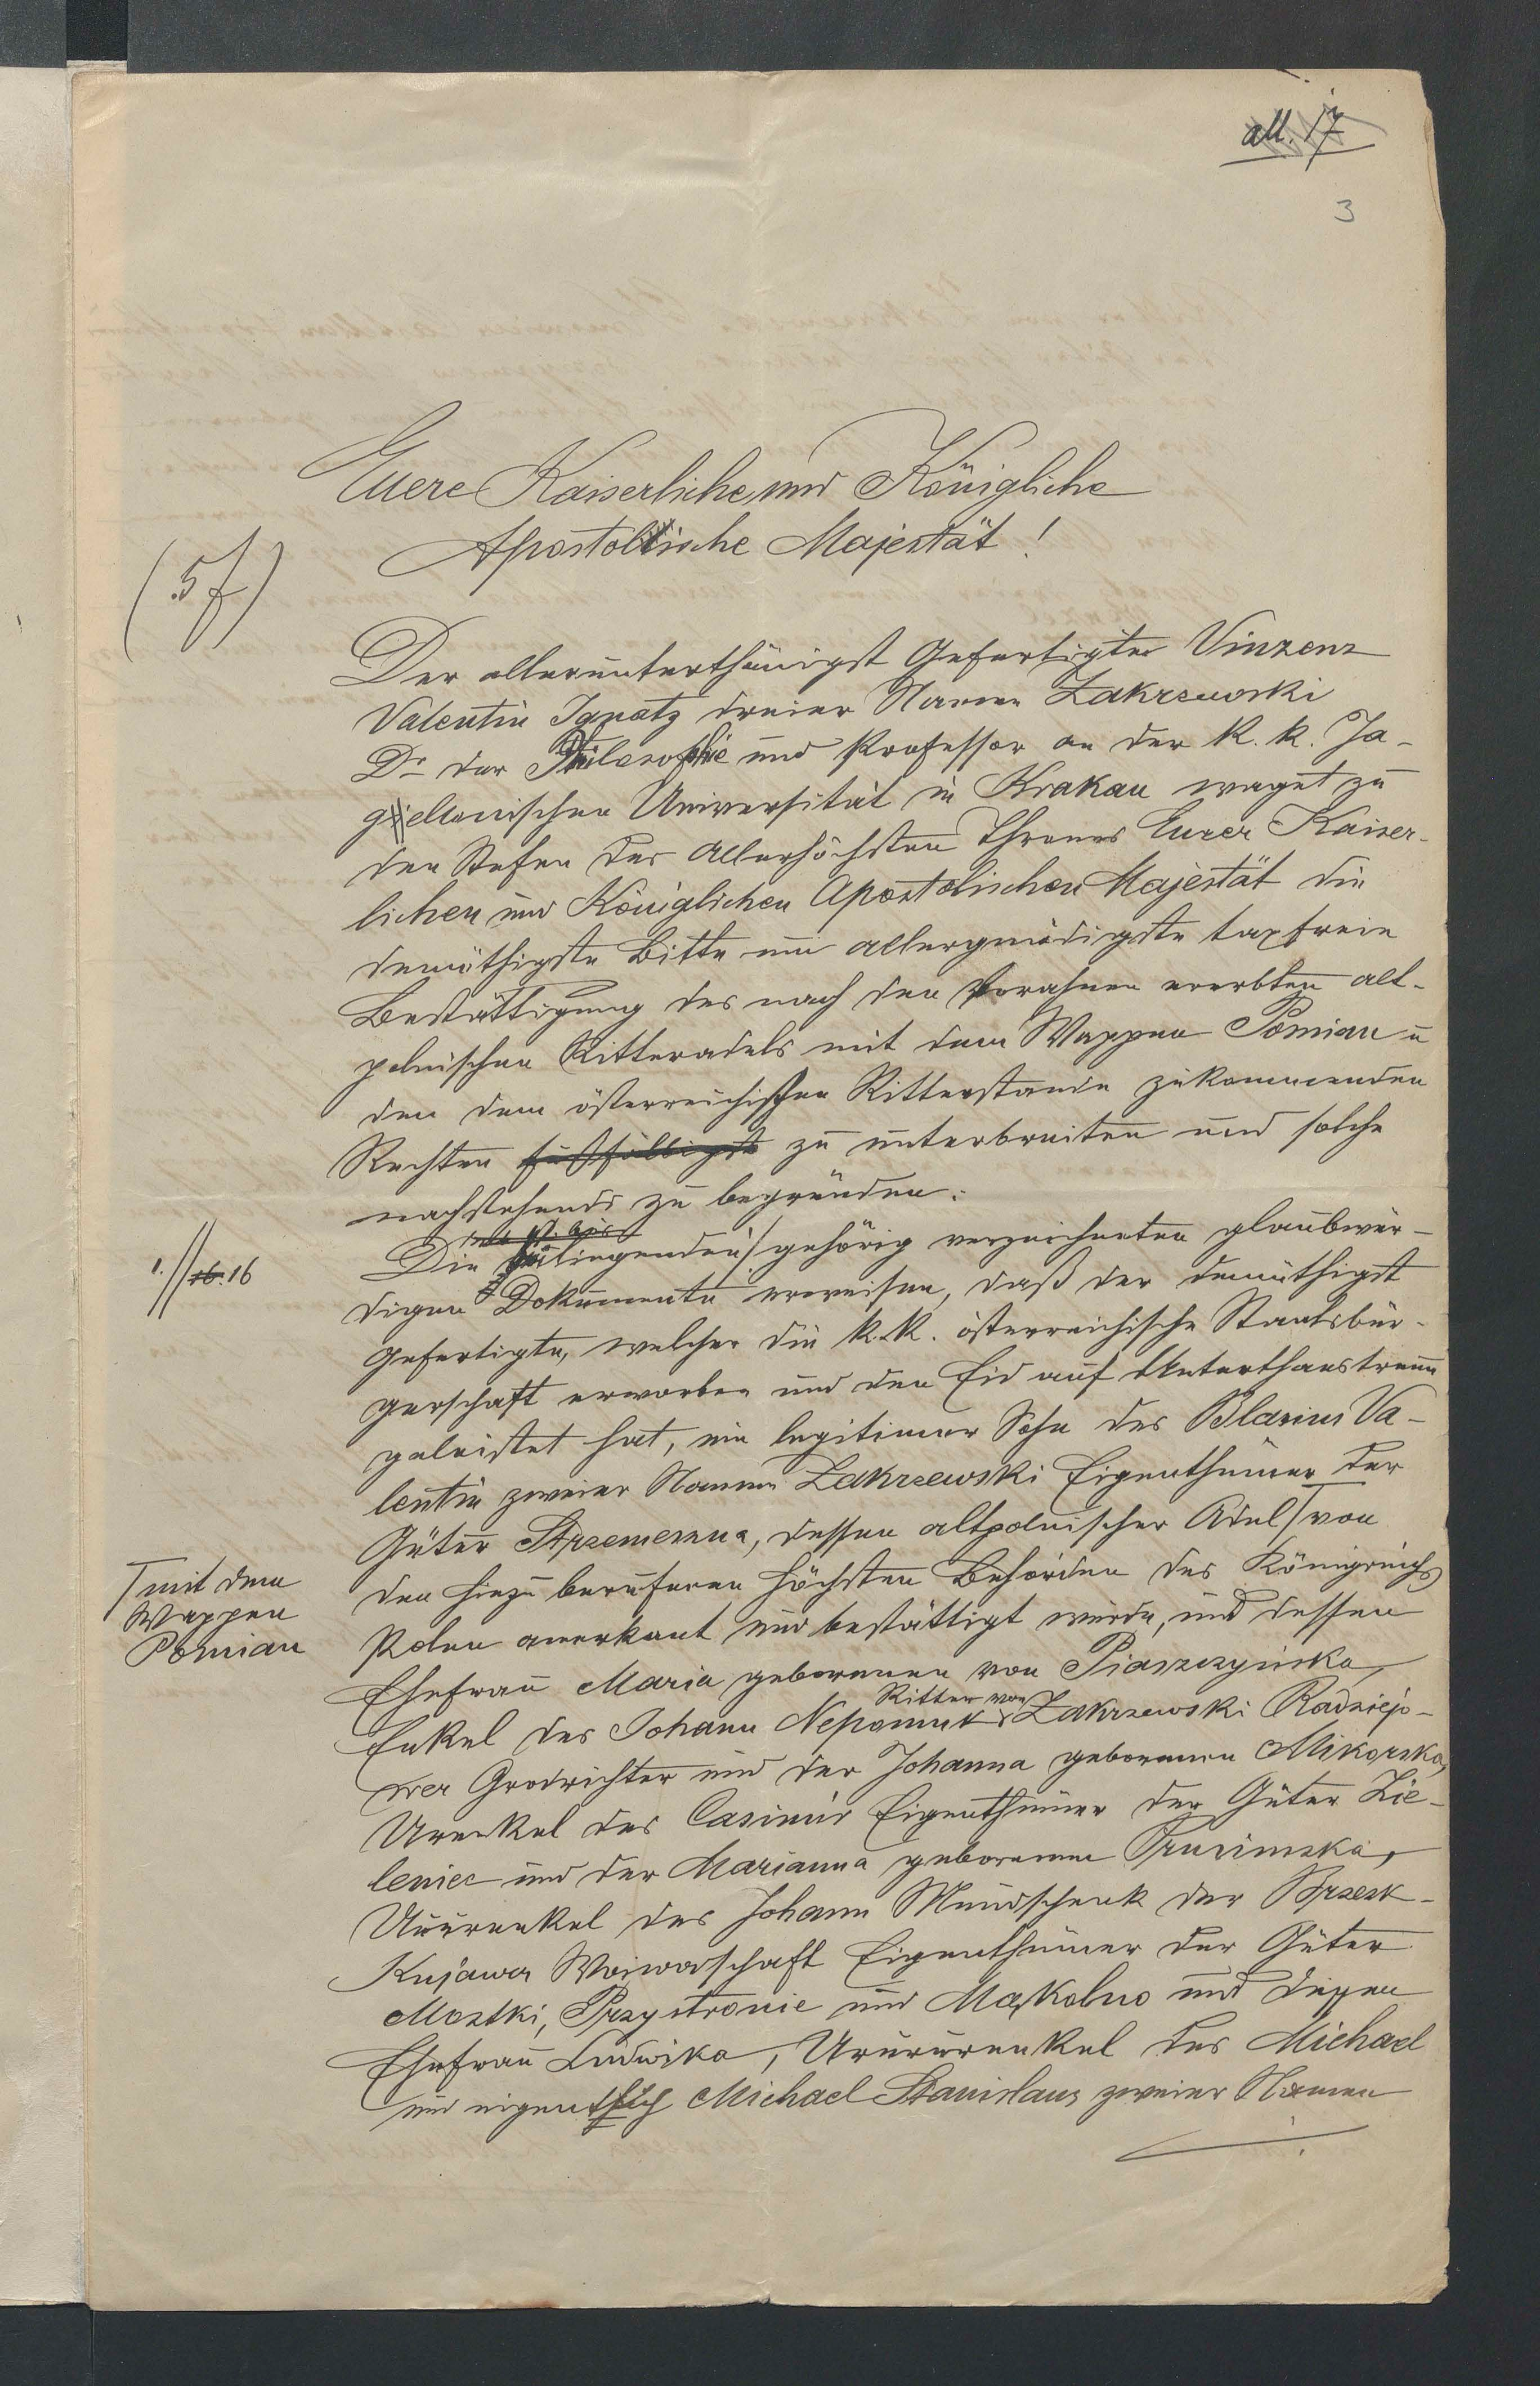 all. 17
3
Euere Kaiserliche und Königliche
Apostolische Majestät!
(5f)
Der allerunterthänigst Gefertigte Vinzenz
Valentin Ignatz dreier Namen Zakrzewski
Dr der Philosophie und Professor an der k. k. Ja-
giellonischen Universität in Krakau waget zu
den Stufen des Allerhöchsten Thrones Eurer Kaiser-
lichen und Königlichen Apostolischen Majestät die
demüthigste Bitte um allergnädigste taxfreie
Bestättigung des nach den Vorahnen ererbten alt-
polnischen Ritteradels mit dem Wappen Pomian u
den dem österreichischen Ritterstande zukommenden
Rechten fußfälligst zu unterbreiten und solche
nachstehends zu begründen:
Die beiliegenden gehörig verzeichneten glaubwür-
1.//16. 16
digen Dokumente erweisen, daß der demüthigst
Gefertigte, welcher die k. k. österreichische Staatsbür-
gerschaft erworben und den Eid auf Unterthanstreue
geleistet hat, ein legitimer Sohn des Blasius Va-
lentin zweier Namen Zakrzewski Eigenthümer der
Güter Strzemeszna, dessen altpolnischer Adel von
mit dem
Wappen
Pomian
den hiezu berufenen höchsten Behörden des Königreichs
Polen anerkant und bestättigt wurde, und dessen
Ehefrau Maria geborenen von Piaszczyńska,
Ritter von
Enkel des Johann Nepomuk Zakrzewski Radziejo-
wer Grodrichter und der Johanna geborenen Mikorska,
Urenkel des Casimir Eigenthümer der Güter Zie-
leniec und der Marianna geborenen Pruzimska,
Ururenkel des Johann Mundschenk der Brzesk-
Kujawer Woiwodschaft Eigenthümer der Güter
Mostki, Przystronie und Mąkolno und dessen
Ehefrau Ludwika, Urururenkel des Michael
und eigentlich Michael Stanislaus zweier Namen